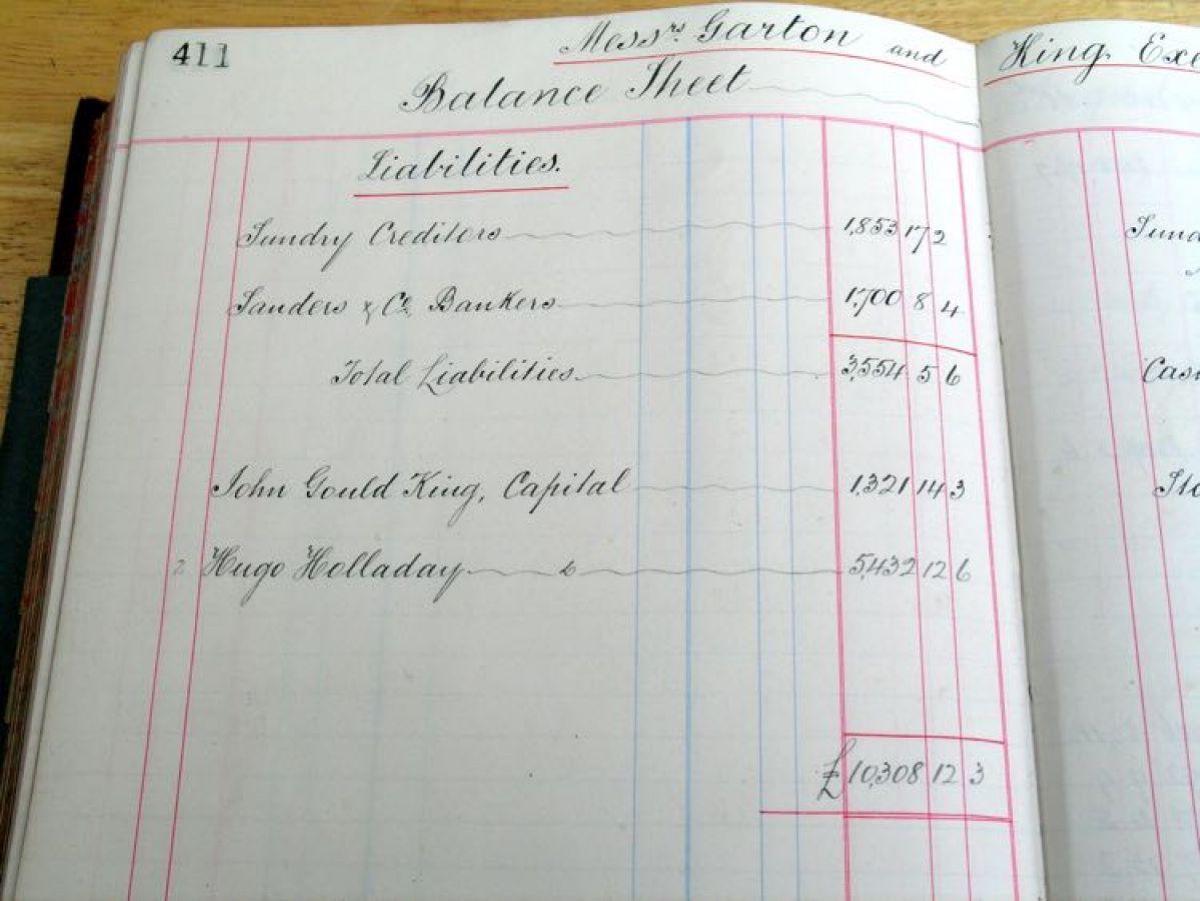 411
Messrs. Garton and King, Exe
Balance Sheet
Liabilities.
Sundry Creditors 1,853 17 2
Sanders & Co. Bankers 1,700 8 4
Total Liabilities 3,554 5 6
John Gould King, Capital 1,321 14 3
2 Hugo Holladay 5,432 12 6
£10,308 12 3
Sund
Cas
Sto